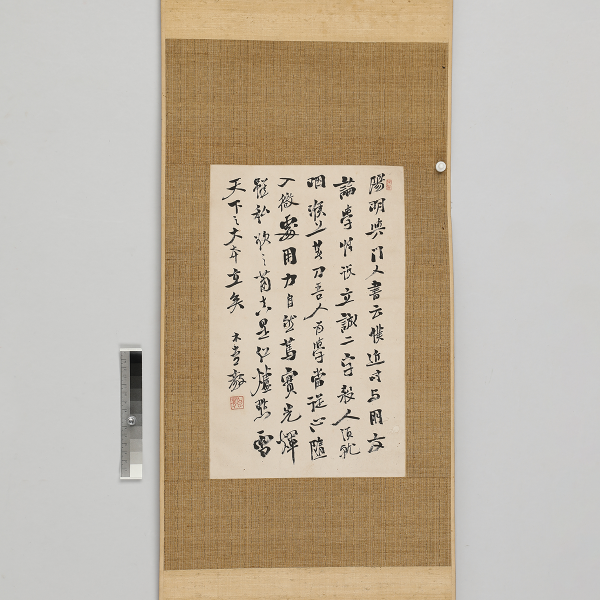 陽明與門人書云僕近時与朋友
論學惟説立誠二字殺人須就
咽喉上著刀吾人為學當從心髓
入微處用力自然篤實光輝
雖私欲之萌真是紅爐點雪
天下之大本立矣
木堂毅